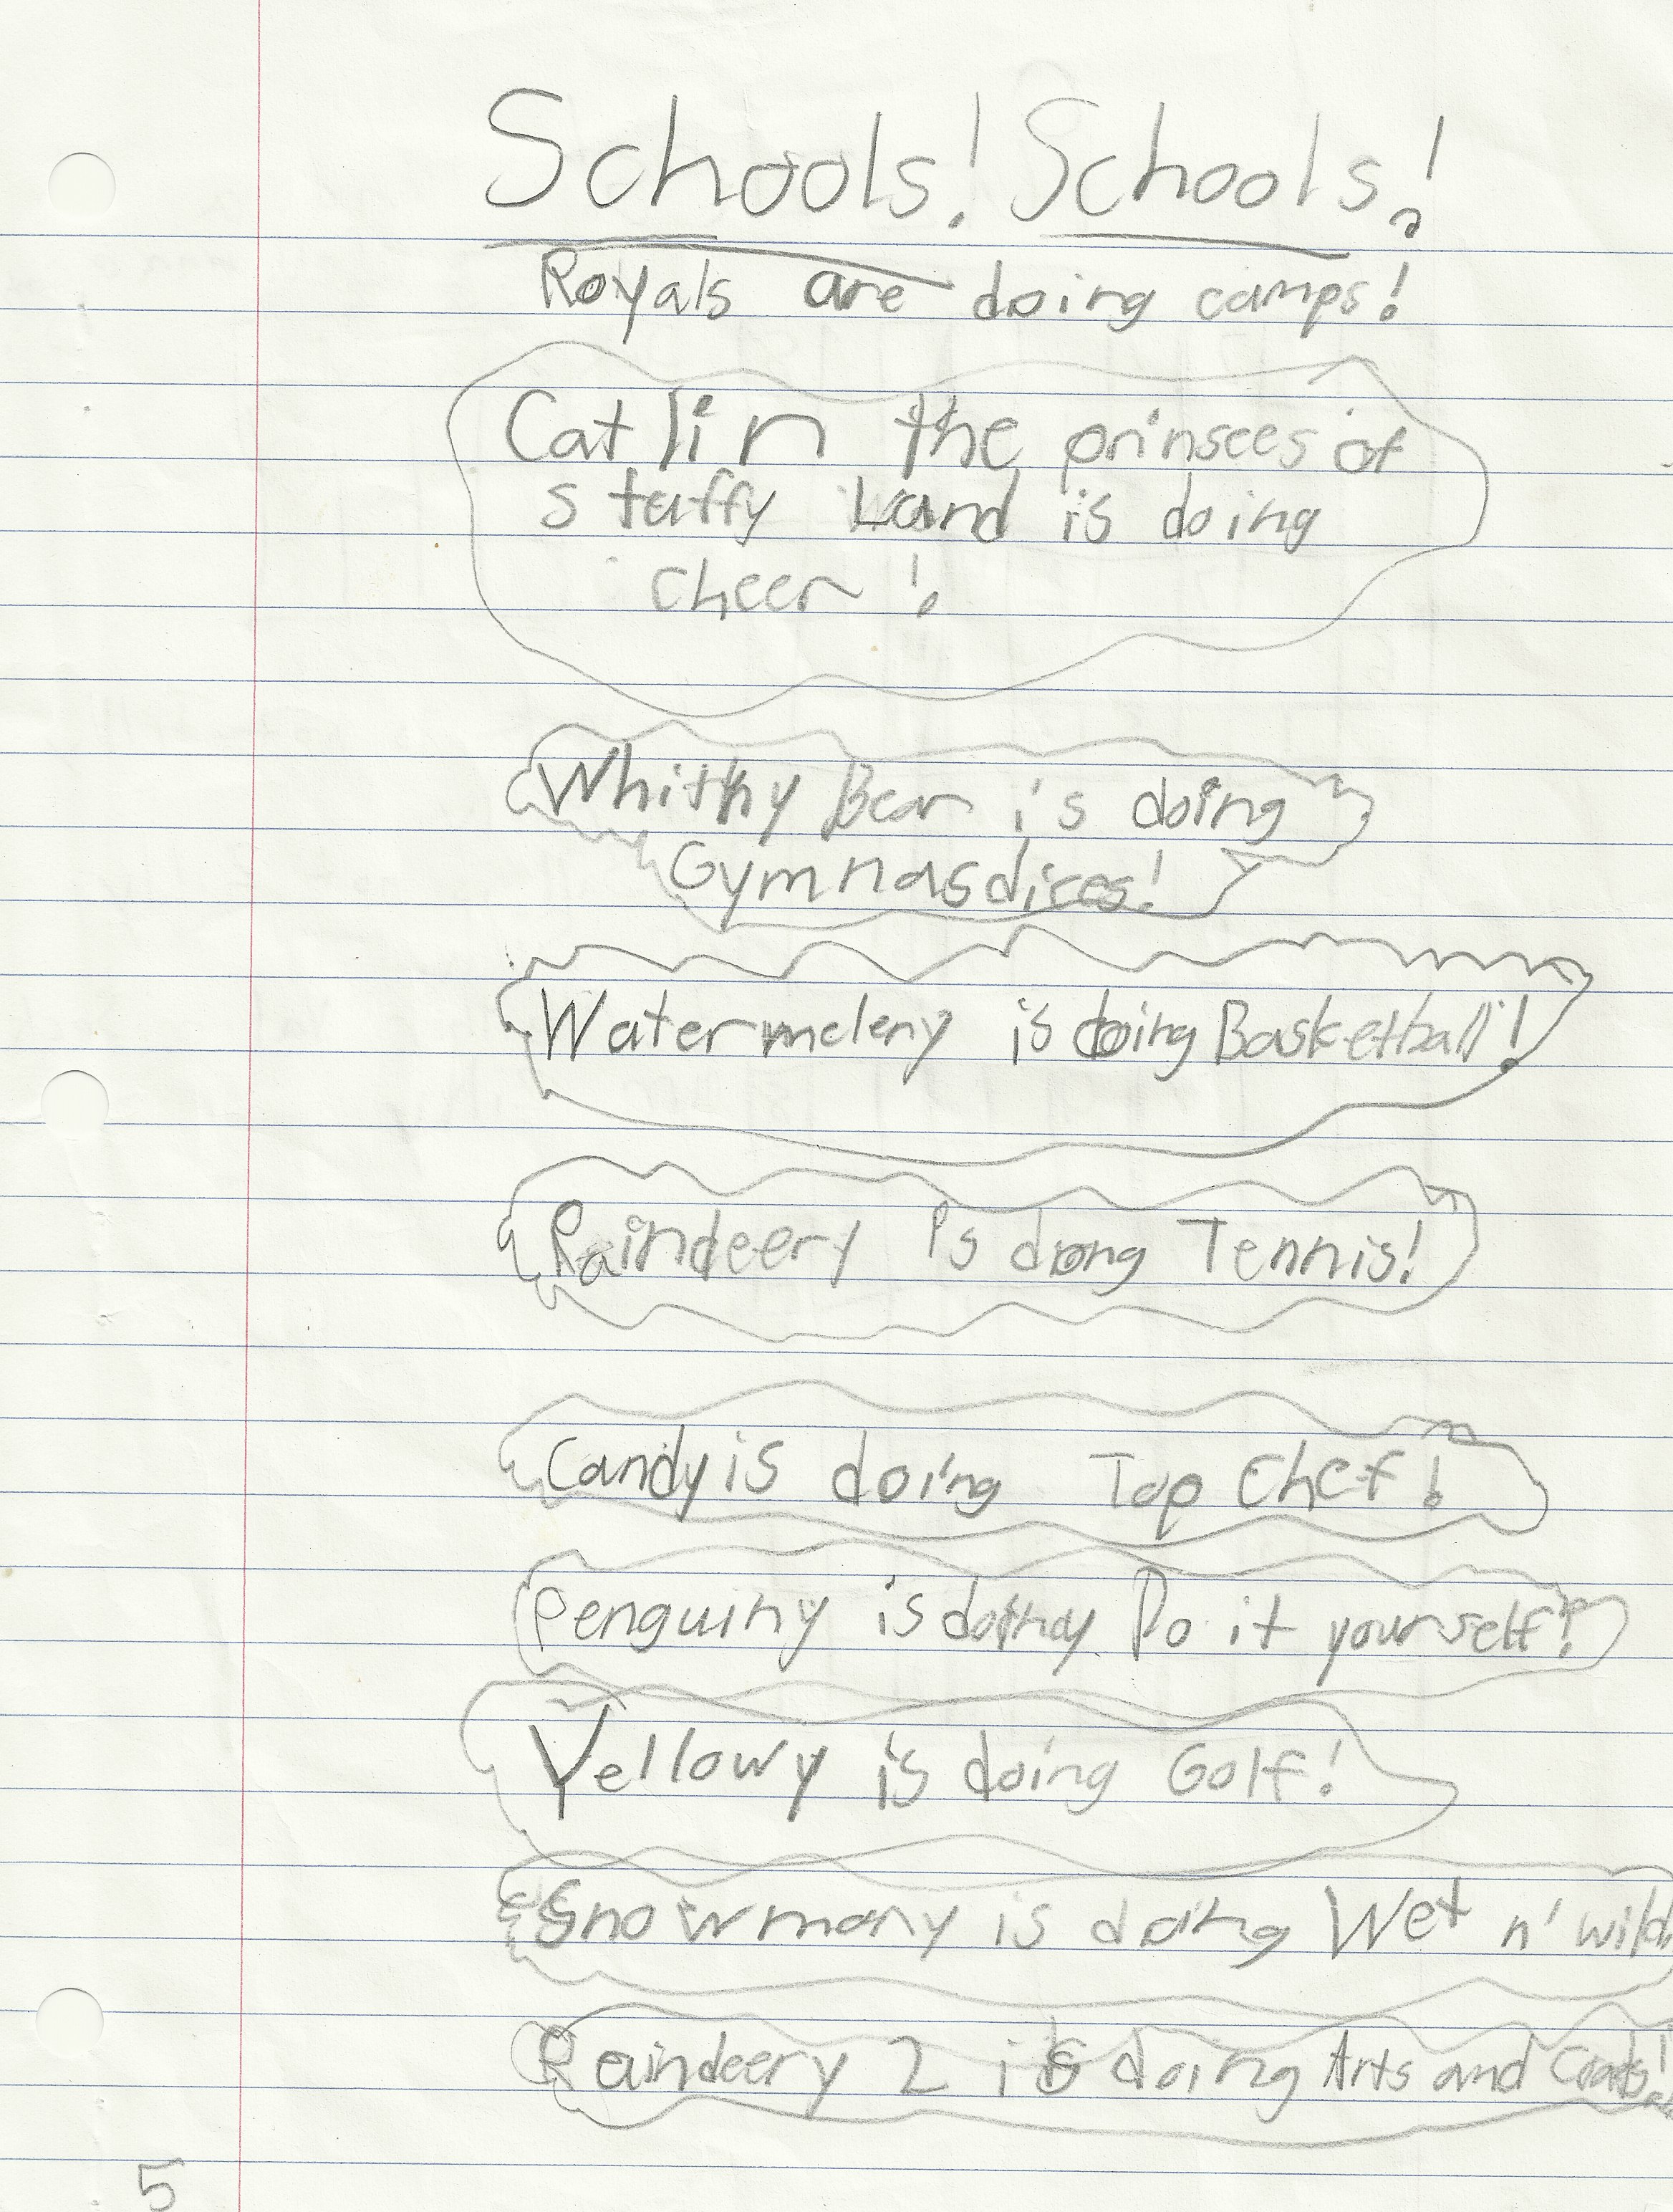 Schools! Schools!
Royals are doing camps!
Catlin the prinsees of
stuffy Land is doing
cheer!
Whithy Bear is doing
Gymnasdices!
Watermeleny is doing Basketball!
Raindeery is doing Tennis!
Candy is doing Top Chef!
Penguiny is doing Do it yourself!
Yellowy is doing Golf!
Snowmany is doing Wet n' wild
Raindeery 2 is doing Arts and
5